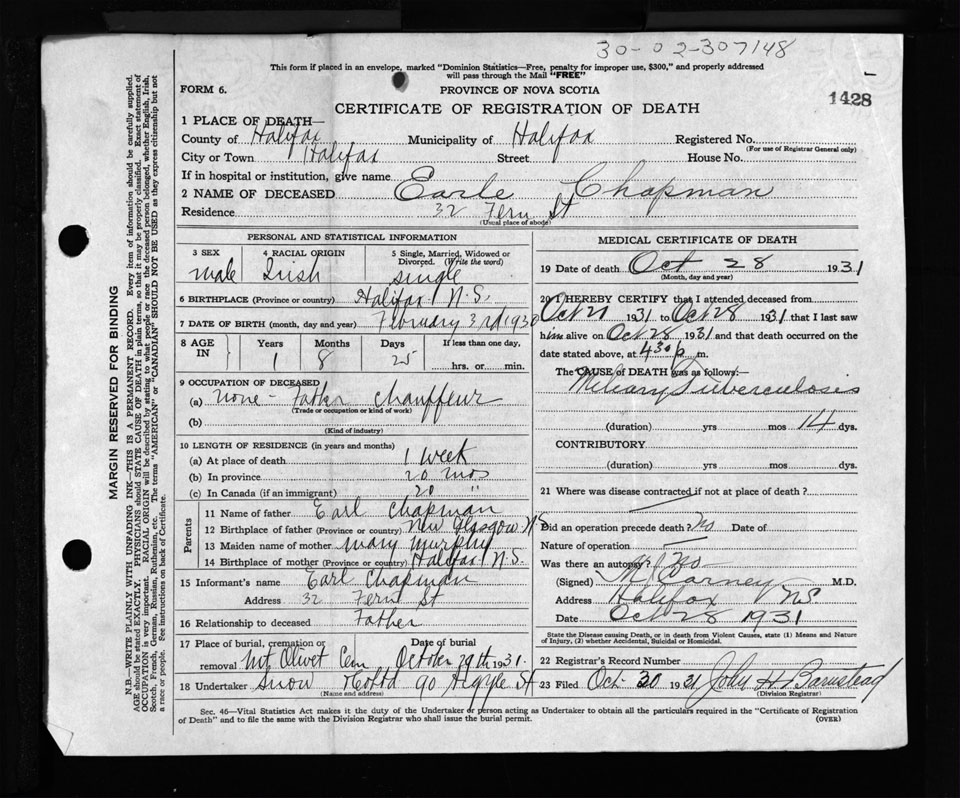 30-02-307148
This form if placed in an envelope, marked "Dominion Statistics—Free, penalty for improper use, $300," and properly addressed
will pass through the Mail "FREE"
FORM 6.
PROVINCE OF NOVA SCOTIA
CERTIFICATE OF REGISTRATION OF DEATH
1428
1 PLACE OF DEATH—
County of Halifax Municipality of Halifax Registered No.
(For use of Registrar General only)
City or Town Halifax Street House No.
If in hospital or institution, give name
2 NAME OF DECEASED Earle Chapman
Residence 32 Fern St
(Usual place of abode)
PERSONAL AND STATISTICAL INFORMATION
3 SEX 4 RACIAL ORIGIN 5 Single, Married, Widowed or
Divorced. (Write the word)
male Irish single
6 BIRTHPLACE (Province or country) Halifax N.S.
7 DATE OF BIRTH (month, day and year) February 3rd 1930
8 AGE IN Years Months Days If less than one day,
1 8 25 hrs. or min.
9 OCCUPATION OF DECEASED
(a) none - Father Chauffeur
(Trade or occupation or kind of work)
(b)
(Kind of industry)
10 LENGTH OF RESIDENCE (in years and months)
(a) At place of death 1 week
(b) In province 20 mos
(c) In Canada (if an immigrant) 20 "
Parents
11 Name of father Earl Chapman
12 Birthplace of father (Province or country) New Glasgow N.S.
13 Maiden name of mother Mary Murphy
14 Birthplace of mother (Province or country) Halifax N.S.
15 Informant's name Earl Chapman
Address 32 Fern St
16 Relationship to deceased Father
17 Place of burial, cremation or removal Mt Olivet Cem Date of burial October 29th 1931.
18 Undertaker Snow & Co Ltd 90 Argyle St
(Name and address)
MEDICAL CERTIFICATE OF DEATH
19 Date of death Oct 28 1931
(Month, day and year)
20 I HEREBY CERTIFY that I attended deceased from
Oct 21 1931 to Oct 28 1931 that I last saw
him alive on Oct 28 1931 and that death occurred on the
date stated above, at 4 30 p m.
The CAUSE OF DEATH was as follows:—
Miliary Tuberculosis
(duration) yrs mos 14 dys.
CONTRIBUTORY
(duration) yrs mos dys.
21 Where was disease contracted if not at place of death?
Did an operation precede death? No Date of
Nature of operation
Was there an autopsy? No
(Signed) M.D.
Address Halifax N.S.
Date Oct 28 1931
State the Disease causing Death, or in death from Violent Causes, state (1) Means and Nature
of Injury, (2) whether Accidental, Suicidal or Homicidal.
22 Registrar's Record Number
23 Filed Oct 30 1931 John H Barnstead
(Division Registrar)
Sec. 46—Vital Statistics Act makes it the duty of the Undertaker or person acting as Undertaker to obtain all the particulars required in the "Certificate of Registration
of Death" and to file the same with the Division Registrar who shall issue the burial permit.
(OVER)
MARGIN RESERVED FOR BINDING
N.B.—WRITE PLAINLY WITH UNFADING INK—THIS IS A PERMANENT RECORD. Every item of information should be carefully supplied.
AGE should be stated EXACTLY. PHYSICIANS should STATE CAUSE OF DEATH in plain terms, so that it may be properly classified. Exact statement of
OCCUPATION is very important. RACIAL ORIGIN will be described by stating to what people or race the deceased person belonged, whether English, Irish,
Scotch, French, German, Russian, Ruthenian, etc. The terms "AMERICAN" or "CANADIAN" SHOULD NOT BE USED as they express citizenship but not
a race or people. See instructions on back of Certificate.